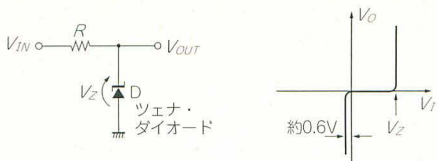 R
V_IN
V_OUT
V_Z
D
ツェナ・
ダイオード
V_O
V_I
約0.6V
V_Z